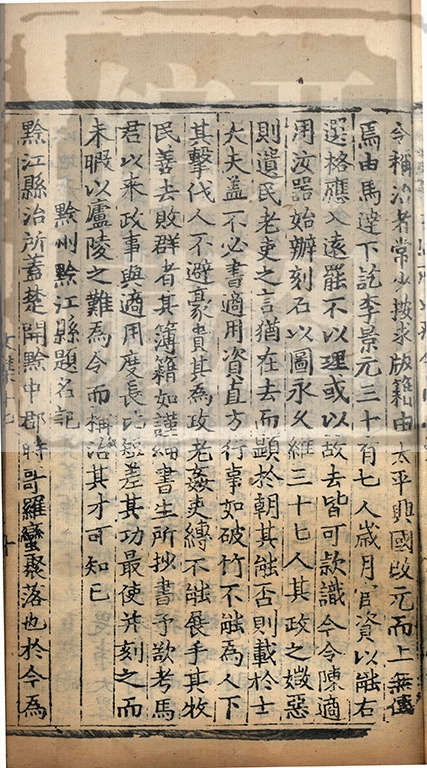 令稱治者常少按求版籍由太平興國改元而上無傳
焉由馬逹下訖李景元三十有七人歲月官資以能右
選格應入遠罷不以理或以故去皆可款識今令陳適
用汝器始辦刻石以圖永久維三十七人其政之媺惡
則遺民老吏之言猶在去而顯於朝其能否則載於士
大夫盖不必書適用資直方行事如破竹不能為人下
其擊伐人不避豪貴其為政老姦吏縛不能展手其牧
民善去敗群者其簿籍如謹細書生所抄書予欲考馬
君以來政事與適用度長比差其功最使并刻之而
未暇以廬陵之難為令而稱治其才可知已
黔州黔江縣題名記
黔江縣治所蓋楚開黔中郡時哥羅蠻聚落也於今為